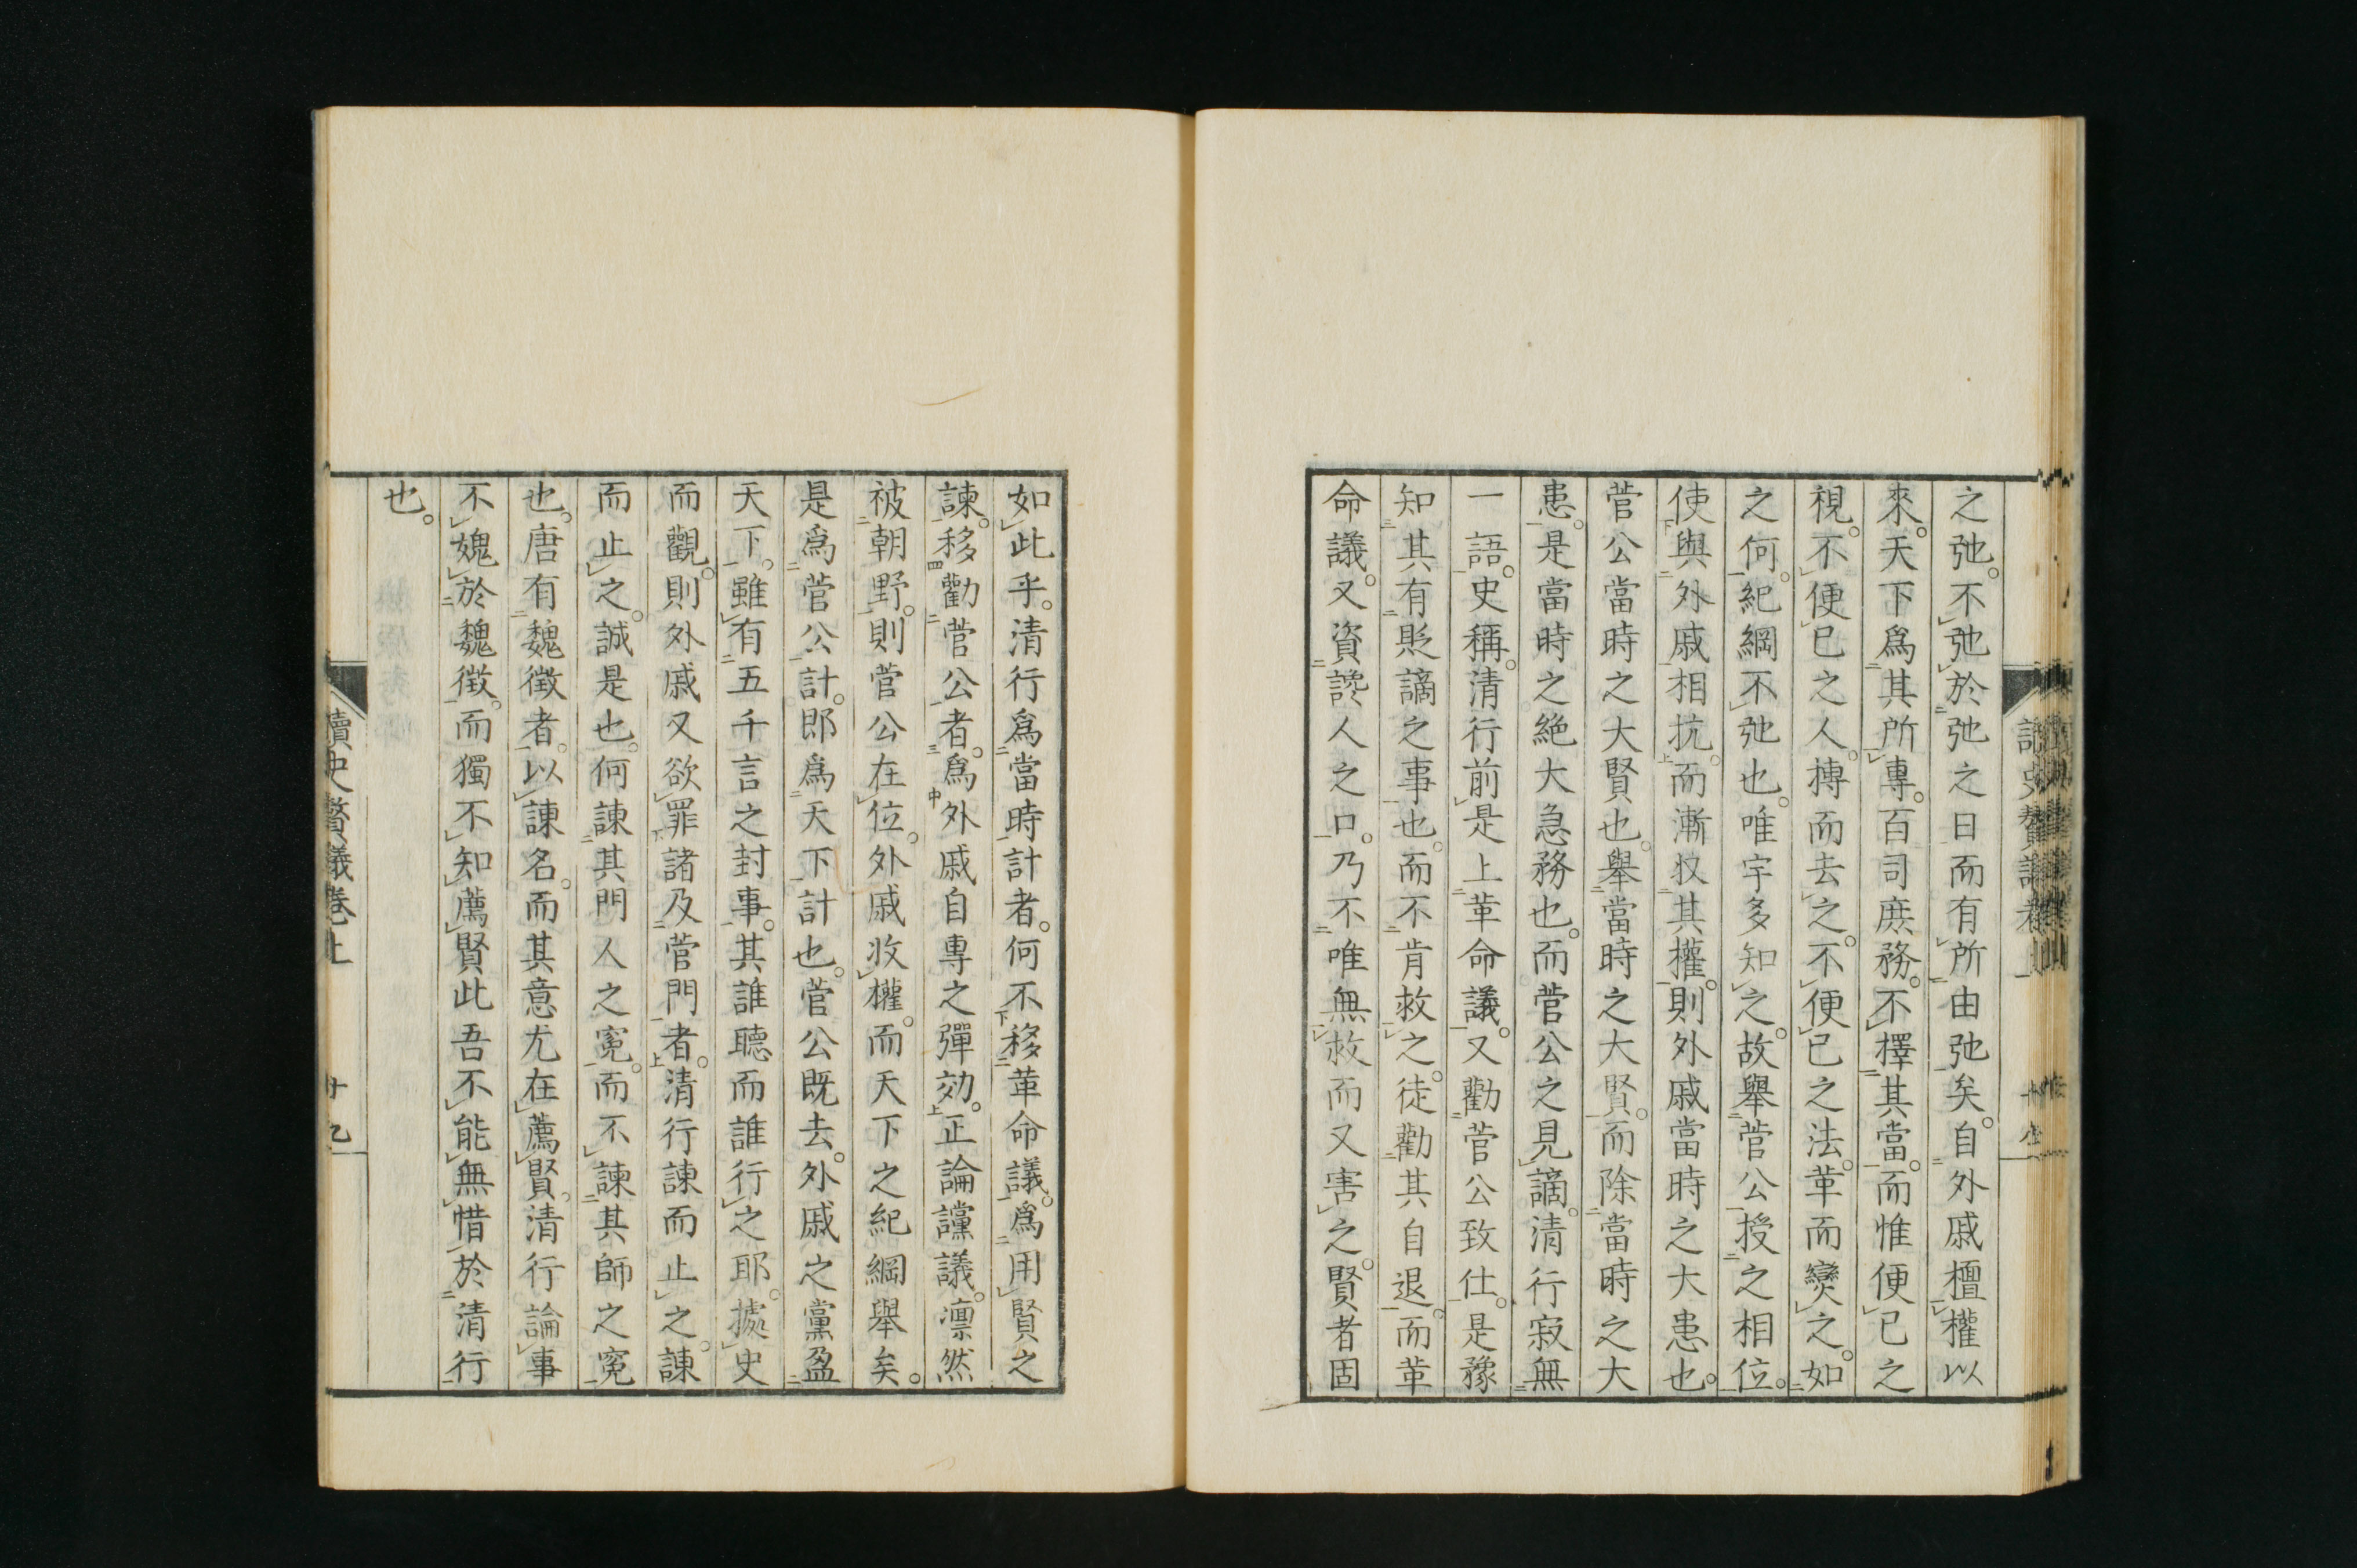 之弛。不弛於弛之日而有所由弛矣。自外戚擅權以
來。天下爲其所專。百司庶務。不擇其當。而惟便已之
視。不便已之人。摶而去之。不便已之法。革而變之。如
之何。紀綱不弛也。唯宇多知之。故舉菅公授之相位。
使與外戚相抗。而漸收其權。則外戚當時之大患也。
菅公當時之大賢也。舉當時之大賢。而除當時之大
患。是當時之絶大急務也。而菅公之見謫。清行寂無
一語。史稱。清行前是上革命議。又勸菅公致仕。是豫
知其有貶謫之事也。而不肯救之。徒勸其自退。而革
命議。又資讒人之口。乃不唯無救而又害之。賢者固
如此乎。清行爲當時計者。何不移革命議。爲用賢之
諫。移勸菅公者。爲外戚自專之彈効。正論讜議。凛然
被朝野。則菅公在位。外戚收權。而天下之紀綱舉矣。
是爲菅公計。即爲天下計也。菅公既去。外戚之黨盈
天下。雖有五千言之封事。其誰聽而誰行之耶。據史
而觀。則外戚又欲罪諸及菅門者。清行諫而止之。諫
而止之。誠是也。何諫其門人之寃。而不諫其師之寃
也。唐有魏徴者。以諫名。而其意尤在薦賢。清行論事
不媿於魏徴。而獨不知薦賢此吾不能無惜於清行
也。
讀史贅議卷上 十九